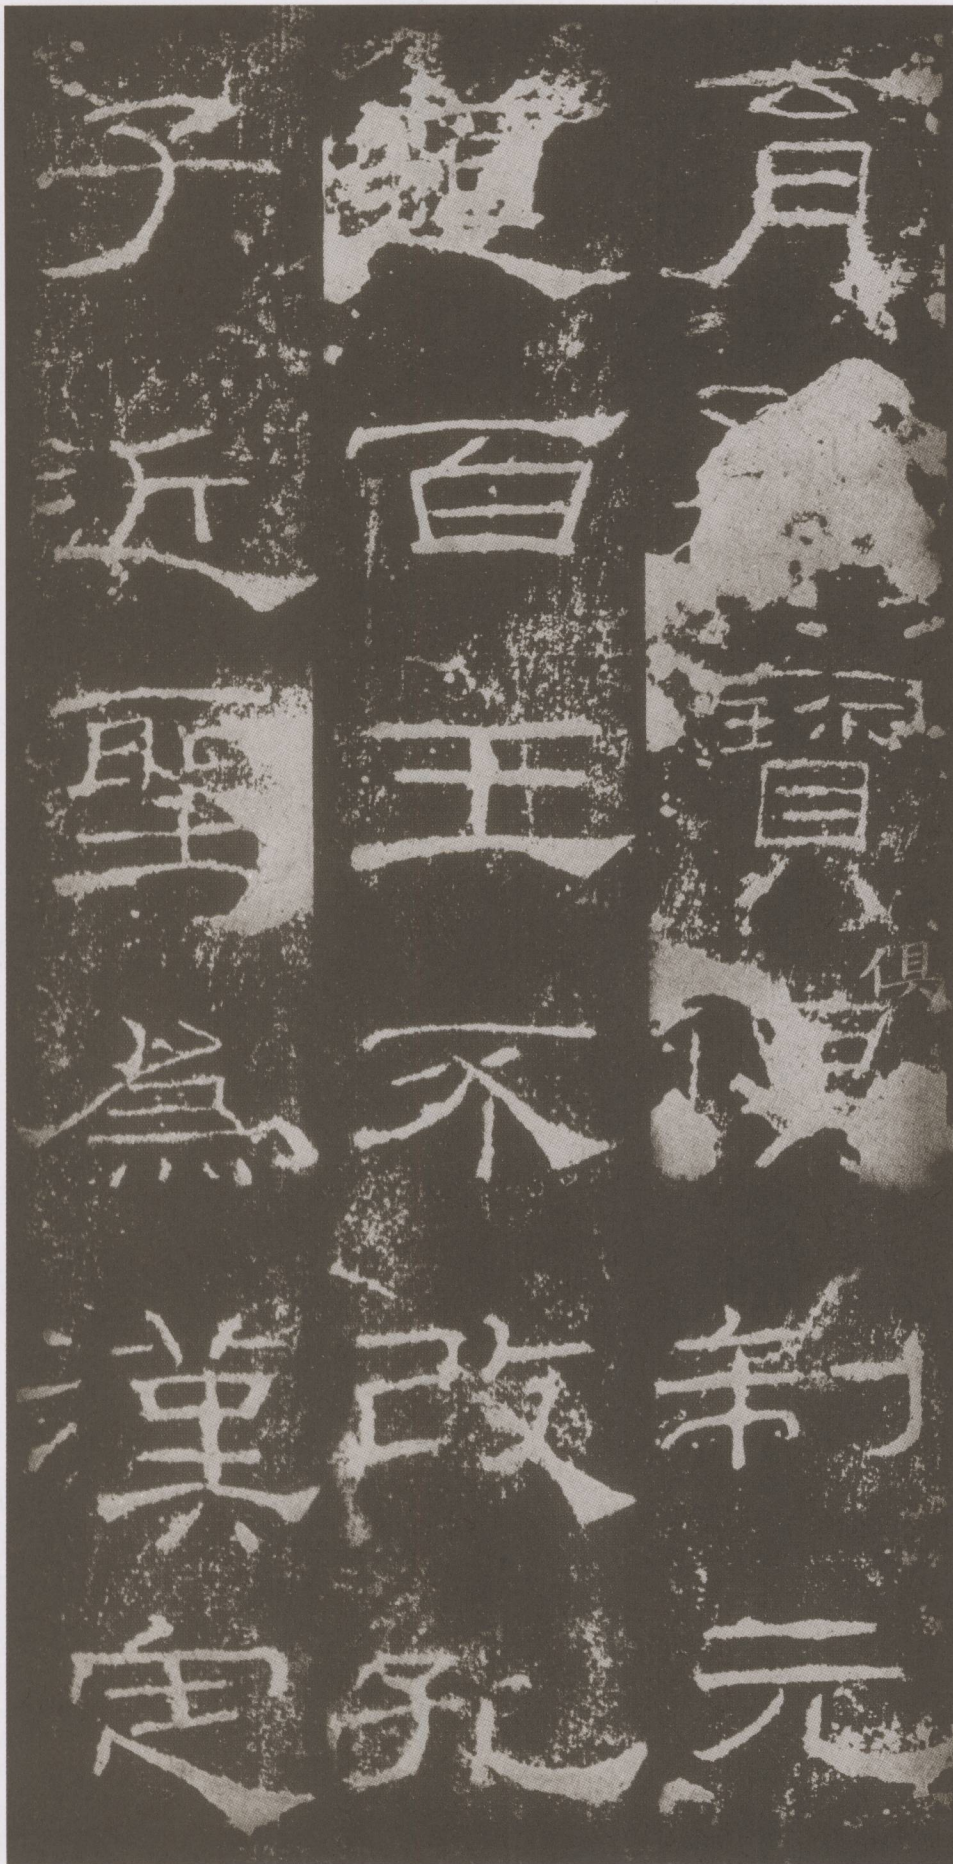 育寶俱制元
道百王不改孔
子近聖爲漢定